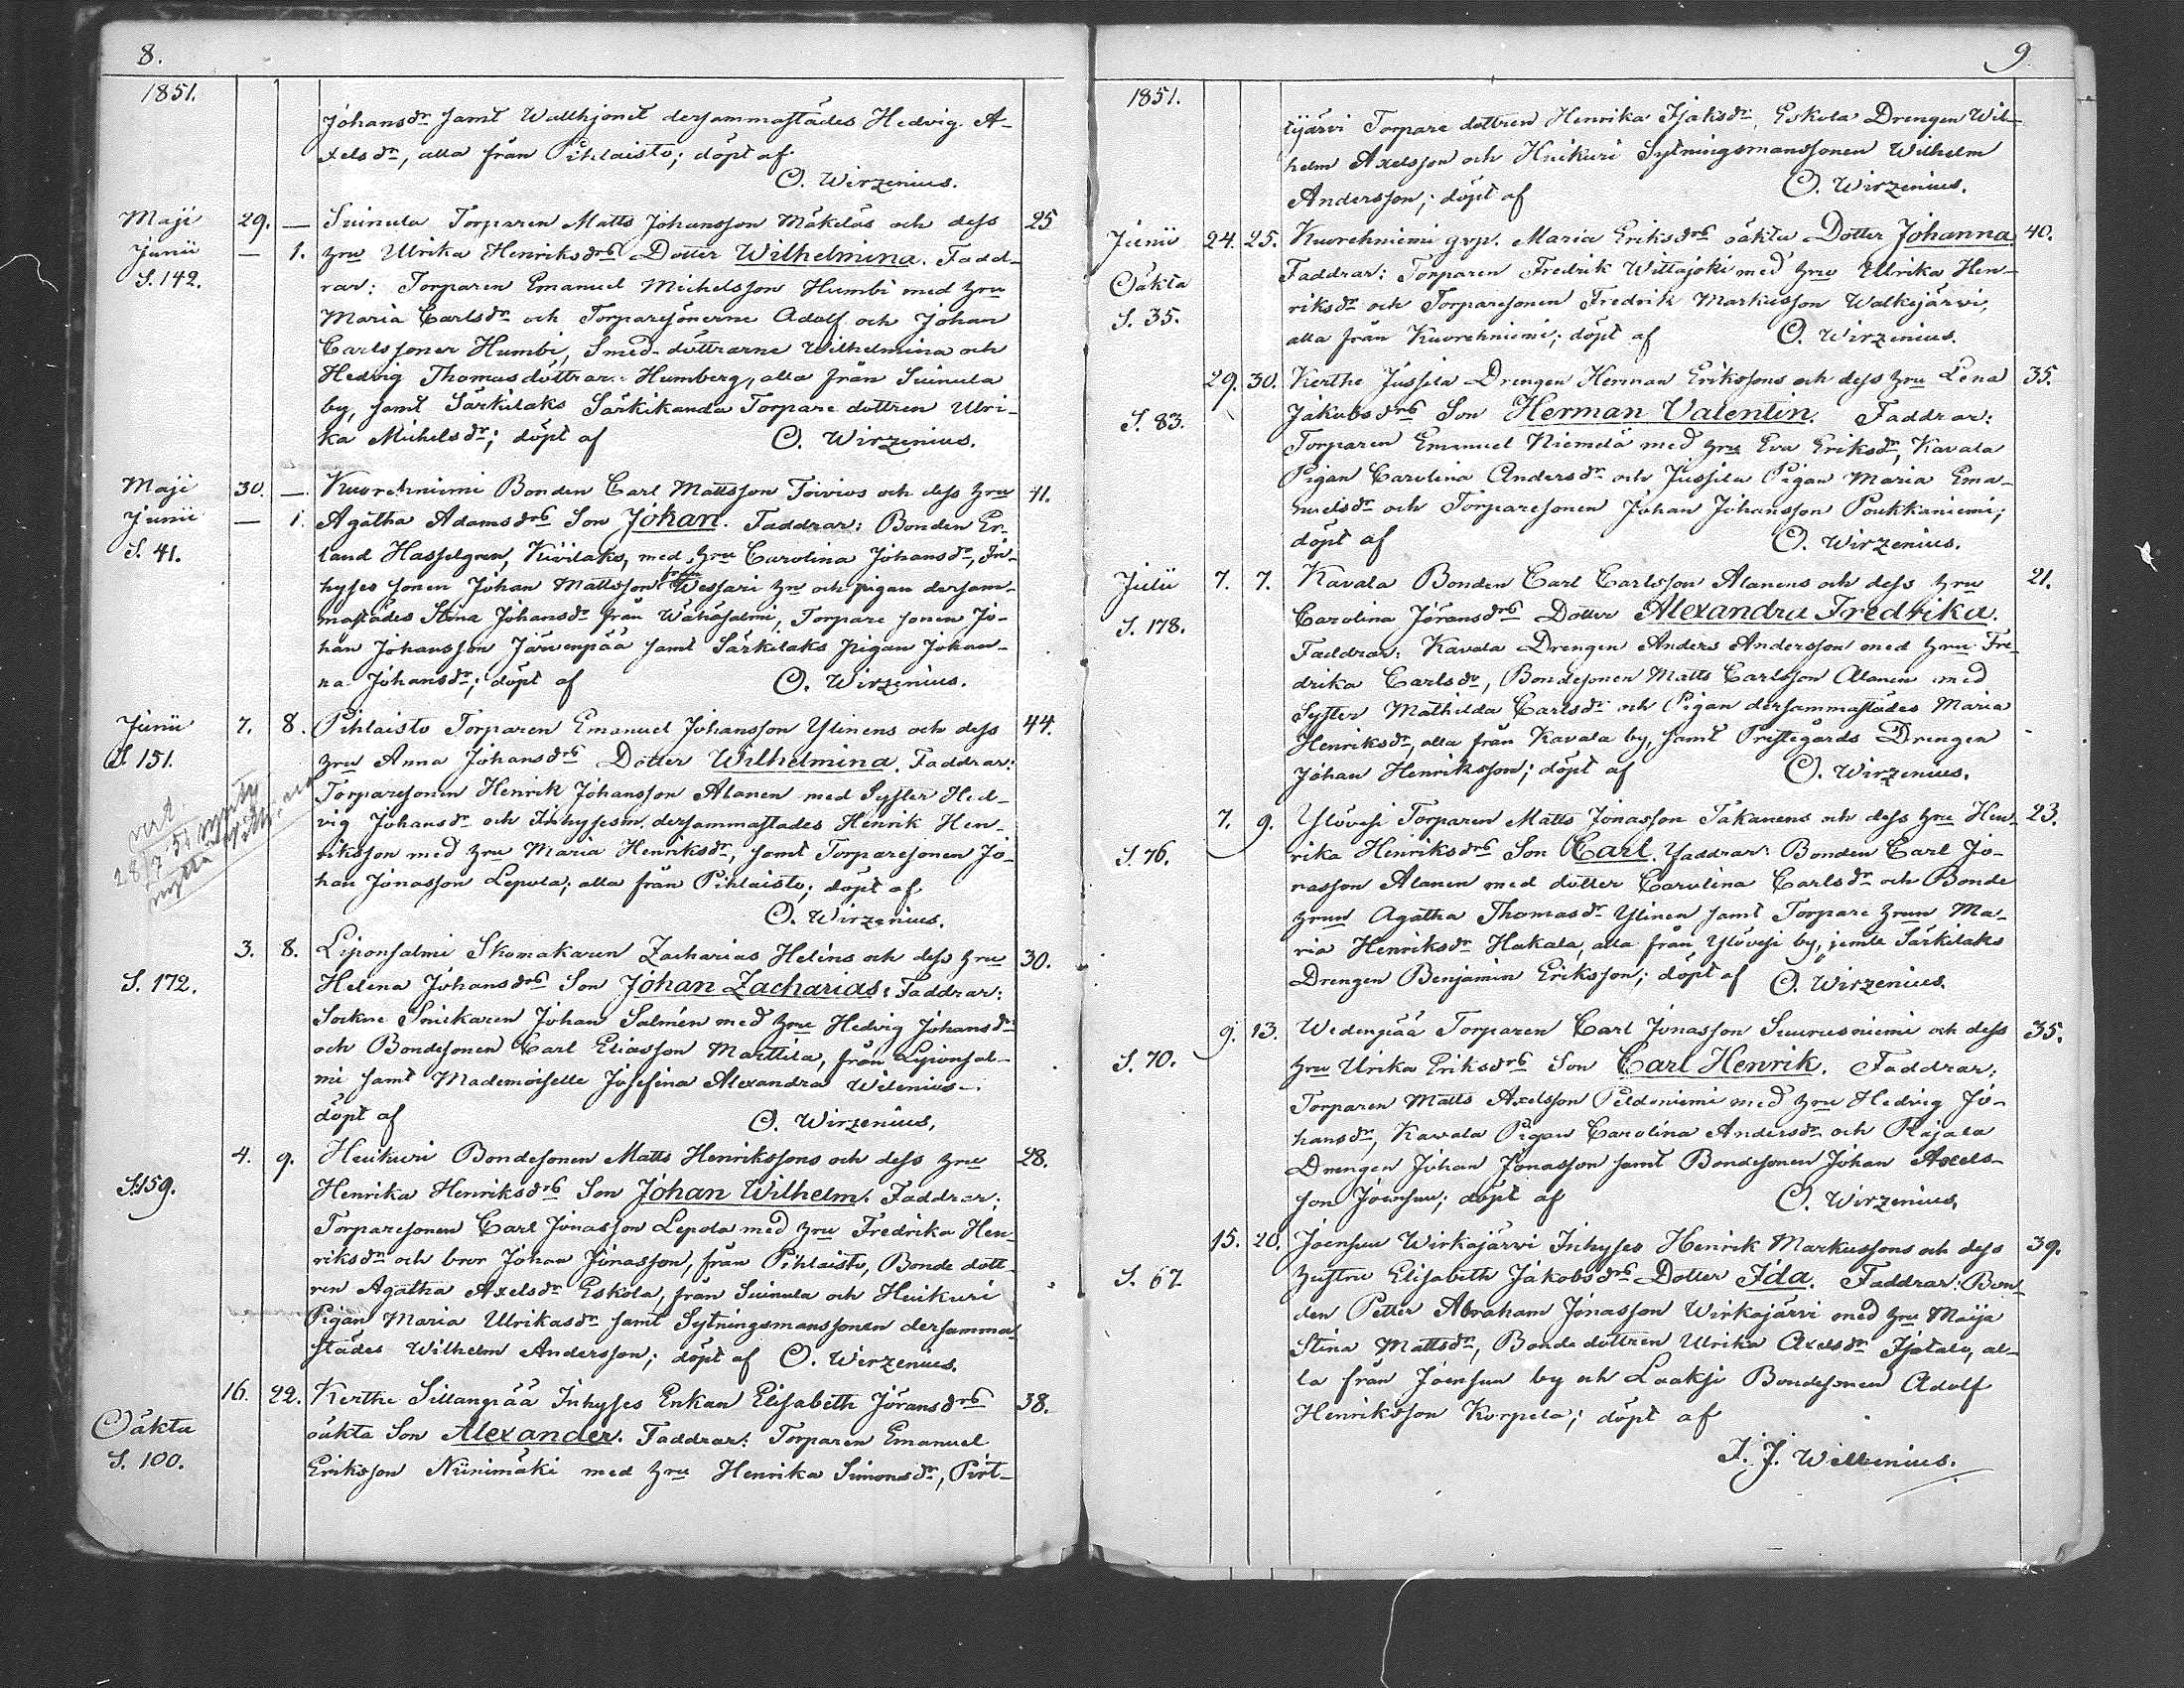 8.
1851.
Johansdr samt Wallhjonet dersammastädes Hedvig A-
xelsdr, alla från Pihlaisto; döpt af
O. Wirzenius.
Maji 29. — Suinula Torparen Matts Johansson Mäkeläs och dess 25
Junii — 1. hru Ulrika Henriksdrs Dotter Wilhelmina. Fadd-
S. 142. rar: Torparen Emanuel Michelsson Humbi med hru
Maria Carlsdr och Torparesönerne Adolf och Johan
Carlssoner Humbi, Smed-döttrarne Wilhelmina och
Hedvig Thomasdöttrar Humberg, alla från Suinula
by, samt Särkilaks Särkikanda Torpare dottren Ulri-
ka Michelsdr; döpt af O. Wirzenius.
Maji 30. — Kuorehniemi Bonden Carl Mattsson Toivios och dess hru 41.
Junii — 1. Agatha Adamsdrs Son Johan. Faddrar: Bonden Er-
S. 41. land Hasselgren, Kivilaks, med hru Carolina Johansdr, In-
hyses sonen Johan Mattsson från Wessari hn och pigan dersam-
mastädes Stina Johansdr från Wähäsalmi, Torpare sonen Jo-
han Johansson Järvenpää samt Särkilaks pigan Johan-
na Johansdr; döpt af O. Wirzenius.
Junii 7. 8. Pihlaisto Torparen Emanuel Johansson Ylinens och dess 44.
S 151. hru Anna Johansdrs Dotter Wilhelmina. Faddrar:
Torparesonen Henrik Johansson Alanen med Syster Hed-
vig Johansdr och Inhysesm. dersammastades Henrik Hen-
28/7 51
riksson med hru Maria Henriksdr, samt Torparesonen Jo-
han Jonasson Lepola; alla från Pihlaisto; döpt af
O. Wirzenius.
3. 8. Liponsalmi Skomakaren Zacharias Heléns och dess hru 30.
S. 172. Helena Johansdrs Son Johan Zacharias; Faddrar:
Sockne Snickaren Johan Salmén med hru Hedvig Johansdr
och Bondesonen Carl Eliasson Marttila, från Liponsal-
mi samt Mademoiselle Josefina Alexandra Wilenius.
döpt af O. Wirzenius.
4. 9. Huikuri Bondesonen Matts Henrikssons och dess hru 28.
S. 159. Henrika Henriksdrs Son Johan Wilhelm. Faddrar;
Torparesonen Carl Jonasson Lepola med hru Fredrika Hen-
riksdr och bror Johan Jonasson, från Pihlaisto, Bonde dott-
ren Agatha Axelsdr Eskola, från Suinula och Huikuri
Pigan Maria Ulrikasdr samt Sytningsmanssonen dersamma-
städes Wilhelm Andersson; döpt af O. Wirzenius.
16. 22. Kerthe Sillanpää Inhyses Enkan Elisabeth Jöransdrs 38.
Oäkta oäkta Son Alexander. Faddrar: Torparen Emanuel
S. 100. Eriksson Niinimäki med hru Henrika Simonsdr, Pirt-
9.
1851.
tijärvi Torpare dottren Henrika Isaksdr, Eskola Drengen Wil-
helm Axelsson och Huikuri Sytningsmanssonen Wilhelm
Andersson; döpt af O. Wirzenius.
Junii 24. 25. Kuorehniemi qvp. Maria Eriksdrs oäkta Dotter Johanna 40.
Oäkta Faddrar: Torparen Fredrik Wittajoki med hru Ulrika Hen-
S. 35. riksdr och Torparesonen Fredrik Markusson Walkejärvi,
alla från Kuorehniemi; döpt af O. Wirzenius.
29. 30. Kerthe Jussila Drengen Herman Erikssons och dess hru Lena 35.
S. 83. Jakobsdrs Son Herman Valentin. Faddrar:
Torparen Emanuel Niemelä med hru Eva Eriksdr, Kavala
Pigan Carolina Andersdr och Jussila Pigan Maria Ema-
nuelsdr och Torparesonen Johan Johansson Poukkaniemi;
döpt af O. Wirzenius.
Julii 7. 7. Kavala Bonden Carl Carlsson Alanens och dess hru 21.
S. 178. Carolina Jöransdrs Dotter Alexandra Fredrika.
Faddrar: Kavala Drengen Anders Andersson med hru Fre-
drika Carlsdr, Bondesonen Matts Carlsson Alanen med
Syster Mathilda Carlsdr och Pigan dersammastädes Maria
Henriksdr, alla från Kavala by, samt Prestegårds Drengen
Johan Henriksson; döpt af O. Wirzenius.
7. 9. Ylövesi Torparen Matts Jonasson Takanens och dess hru Hen- 23.
S. 76. rika Henriksdrs Son Carl. Faddrar: Bonden Carl Jo-
nasson Alanen med dotter Carolina Carlsdr och Bonde
hrun Agatha Thomasdr Ylinen samt Torpare hrun Ma-
ria Henriksdr Hakala, alla från Ylövesi by, jemte Särkilaks
Drengen Benjamin Eriksson; döpt af O. Wirzenius.
9. 13. Wedenpää Torparen Carl Jonasson Suurusniemi och dess 35.
S. 70. hru Ulrika Eriksdrs Son Carl Henrik. Faddrar;
Torparen Matts Axelsson Peldoniemi med hru Hedvig Jo-
hansdr, Kavala Pigan Carolina Andersdr och Rajala
Drengen Johan Jonasson samt Bondesonen Johan Axels-
son Joensuu; döpt af O. Wirzenius.
15. 20. Joensuu Wirkajärvi Inhyses Henrik Markussons och dess 39.
S. 67 hustru Elisabeth Jakobsdrs Dotter Ida. Faddrar: Bon-
den Petter Abraham Jonasson Wirkajärvi med hru Maija
Stina Mattsdr, Bonde dottren Ulrika Axelsdr Isotalo, al-
la från Joensuu by och Laaksi Bondesonen Adolf
Henriksson Korpela; döpt af
J. J. Wilenius.